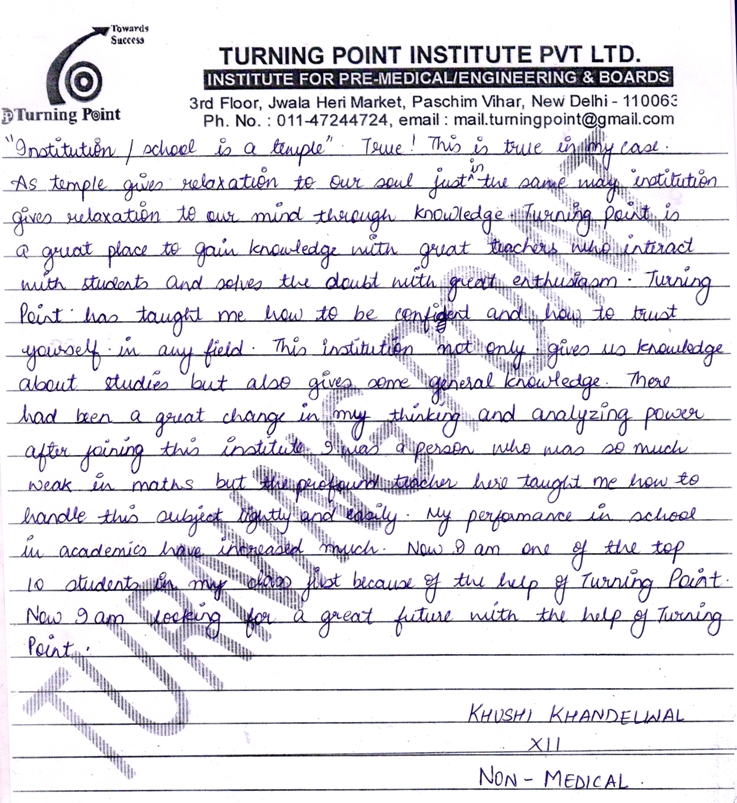 Towards
Success
Turning Point
TURNING POINT INSTITUTE PVT LTD.
INSTITUTE FOR PRE-MEDICAL/ENGINEERING & BOARDS
3rd Floor, Jwala Heri Market, Paschim Vihar, New Delhi - 110063
Ph. No. : 011-47244724, email : mail.turningpoint@gmail.com
"Institution / school is a temple". True! This is true in my case.
As temple gives relaxation to our soul just in the same way institution
gives relaxation to our mind through knowledge. Turning Point is
a great place to gain knowledge with great teachers who interact
with students and solves the doubt with great enthusiasm. Turning
Point has taught me how to be confident and how to trust
yourself in any field. This institution not only gives us knowledge
about studies but also gives some general knowledge. There
had been a great change in my thinking and analyzing power
after joining this institute. I was a person who was so much
weak in maths but the profound teacher here taught me how to
handle this subject lightly and easily. My performance in school
in academics have increased much. Now I am one of the top
10 students in my class just because of the help of Turning Point.
Now I am looking for a great future with the help of Turning
Point.
KHUSHI KHANDELWAL
XII
NON - MEDICAL.
TURNING POINT